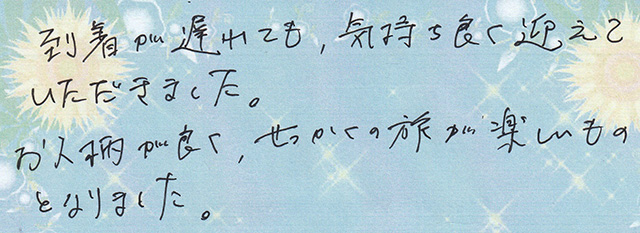 到着が遅れても, 気持ち良く迎えて
いただきました。
お人柄が良く, せっかくの旅が楽しいもの
となりました。